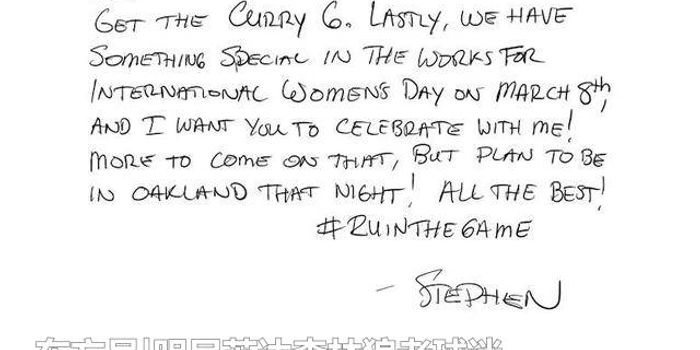 GET THE CURRY 6. LASTLY, WE HAVE
SOMETHING SPECIAL IN THE WORKS FOR
INTERNATIONAL WOMENS DAY ON MARCH 8th,
AND I WANT YOU TO CELEBRATE WITH ME!
MORE TO COME ON THAT, BUT PLAN TO BE
IN OAKLAND THAT NIGHT! ALL THE BEST!
#RUINTHEGAME
- STEPHEN